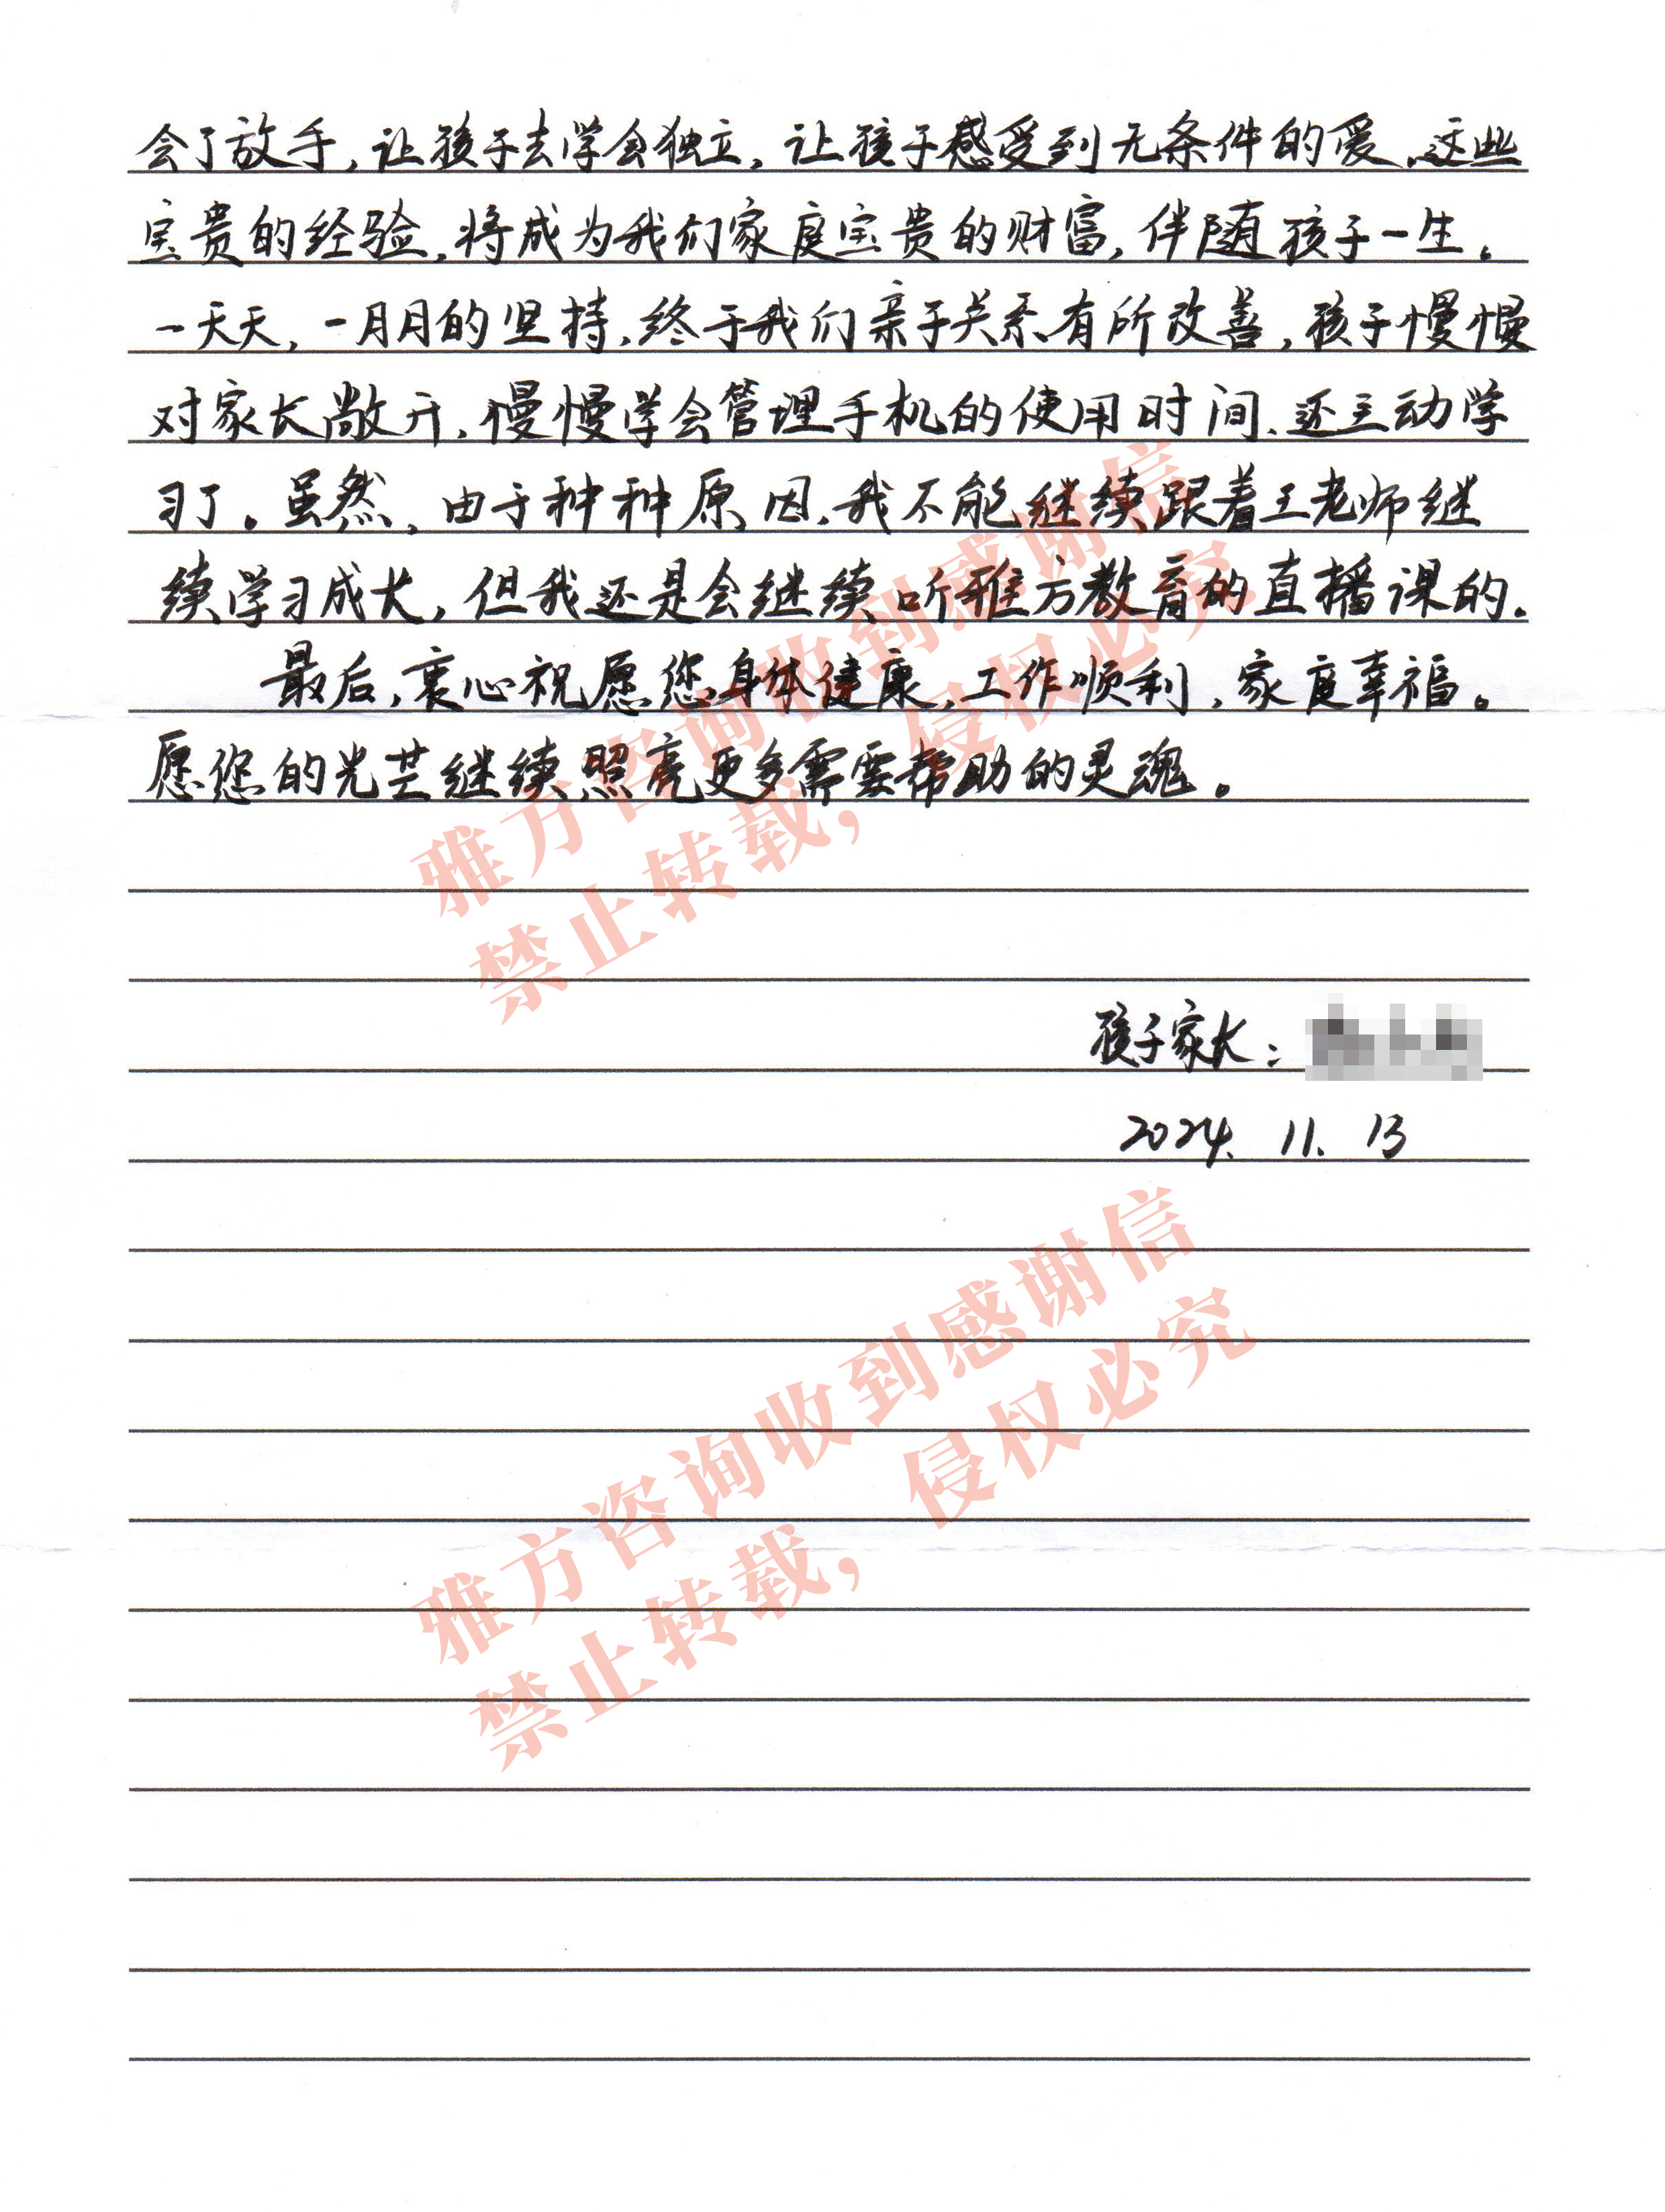 会了放手,让孩子去学会独立,让孩子感受到无条件的爱,这些
宝贵的经验,将成为我们家庭宝贵的财富,伴随孩子一生。
一天天,一月月的坚持,终于我们亲子关系有所改善,孩子慢慢
对家长敞开,慢慢学会管理手机的使用时间、还主动学
习了。虽然,由于种种原因,我不能继续跟着王老师继
续学习成长,但我还是会继续听雅方教育的直播课的.
最后,衷心祝愿您身体健康,工作顺利,家庭幸福。
愿您的光芒继续照亮更多需要帮助的灵魂。
雅方咨询收到感谢信
禁止转载,侵权必究
孩子家长:
2024.11.13
雅方咨询收到感谢信
禁止转载,侵权必究